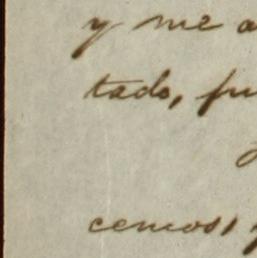 y me a
tado, fu
cemos,